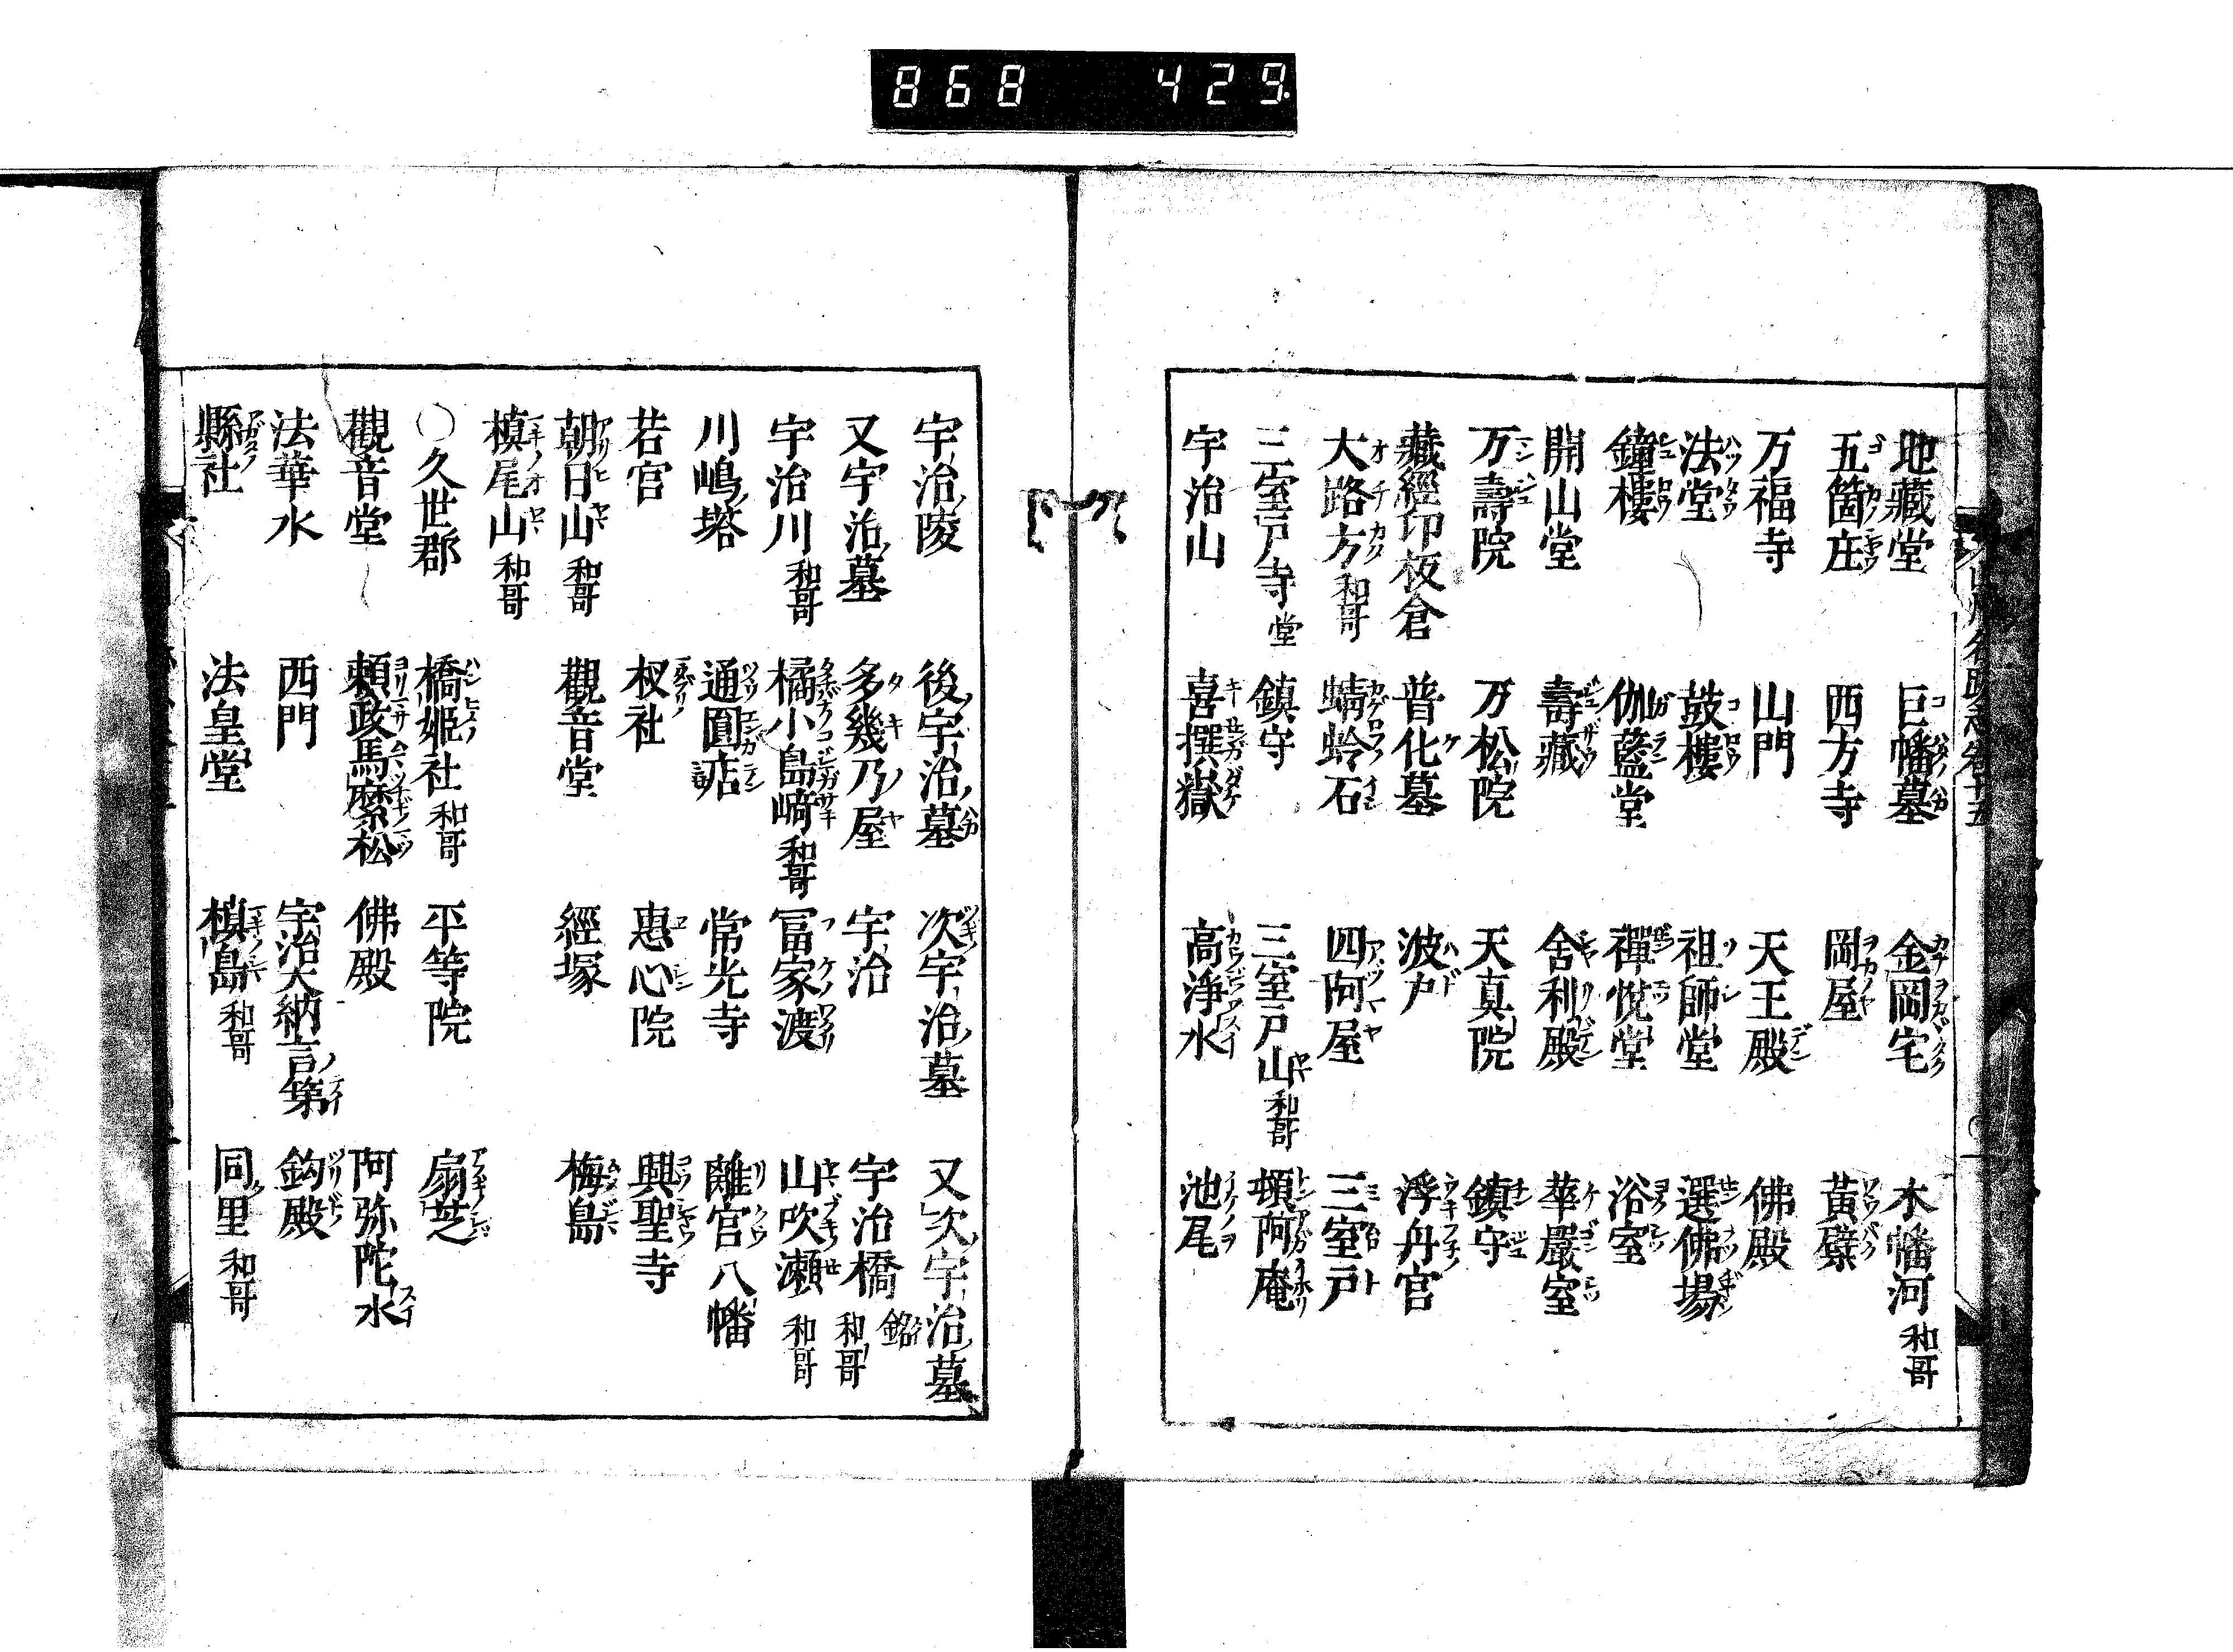 868 429
地藏堂 巨幡墓 金岡宅 木幡河 和哥
五箇庄 西方寺 岡屋 黃檗
万福寺 山門 天王殿 佛殿
法堂 鼓樓 祖師堂 選佛場
鐘樓 伽藍堂 禪悅堂 浴室
開山堂 壽藏 舍利殿 華嚴室
万壽院 万松院 天真院 鎮守
藏經印板倉 普化墓 波戸 浮舟宮
大路方 和哥 蜻蛉石 四阿屋 三室戸
三室戸寺 堂 鎮守 三室戸山 和哥 頓阿庵
宇治山 喜撰嶽 高浄水 池尾
宇治陵 後宇治墓 次宇治墓 又次宇治墓
又宇治墓 多幾乃屋 宇治 宇治橋 銘 和哥
宇治川 和哥 橘小島崎 和哥 冨家渡 山吹瀬 和哥
川嶋塔 通圓店 常光寺 離宮八幡
若宮 杈社 惠心院 興聖寺
朝日山 和哥 觀音堂 經塚 梅島
槙尾山 和哥
○久世郡 橋姫社 和哥 平等院 扇芝
觀音堂 頼政馬繋松 佛殿 阿弥陀水
法華水 西門 宇治大納言第 釣殿
縣社 法皇堂 槙島 和哥 同里 和哥